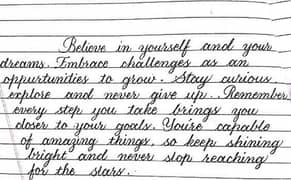 Believe in yourself and your
dreams. Embrace challenges as an
oppurtunities to grow. Stay curious,
explore and never give up.. Remember,
every step you take brings you
closer to your goals. You're capable
of amazing things, so keep shining
bright and never stop reaching
for the stars.